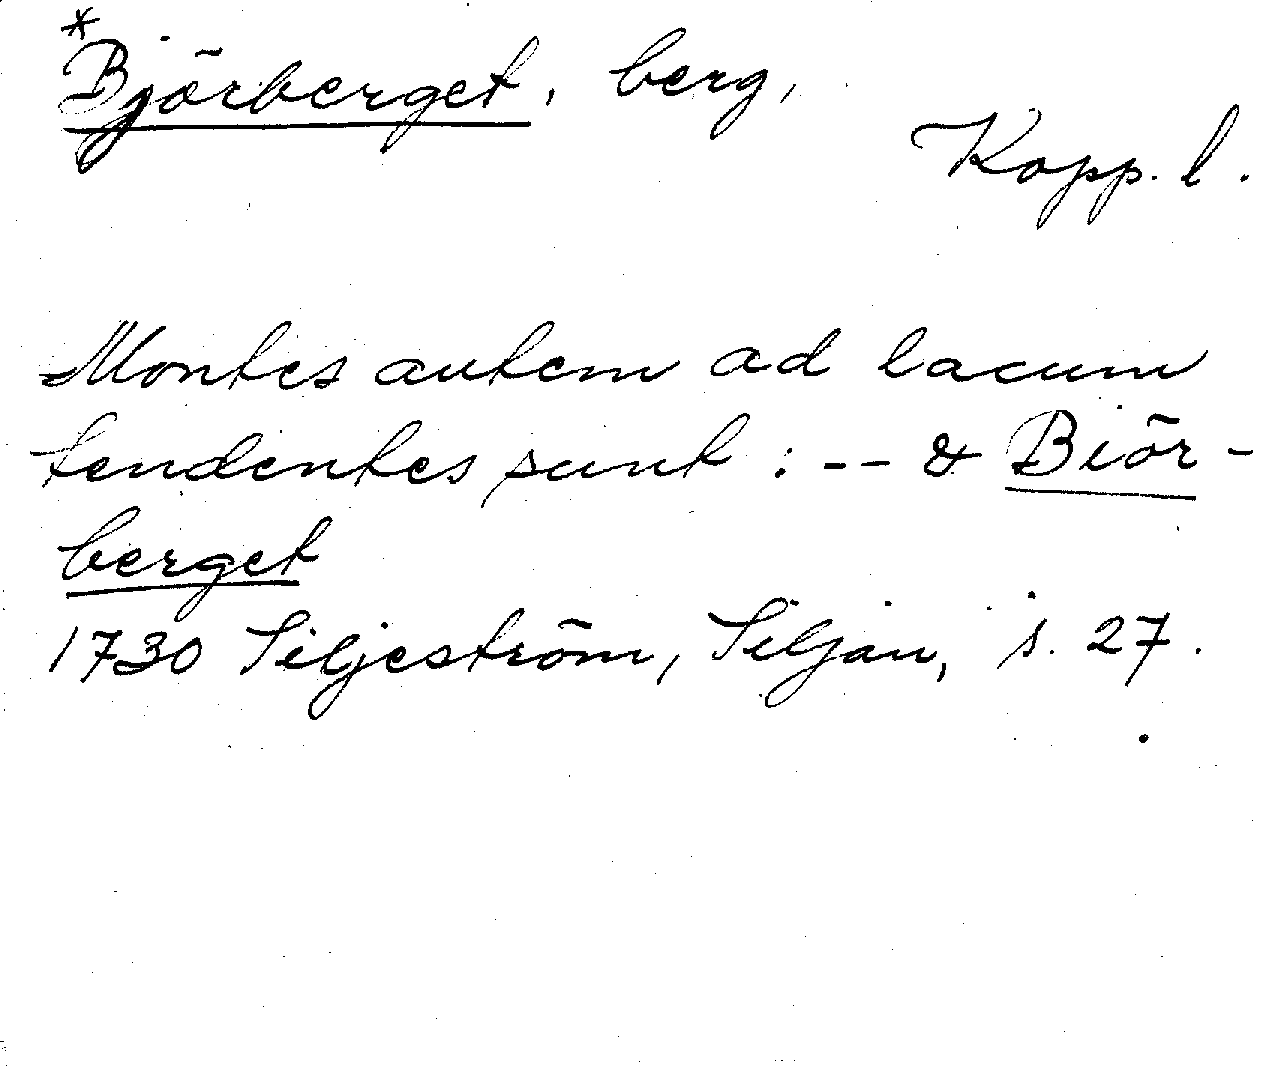 *Björberget, berg,
Kopp. l.
Montes autem ad lacum
tendentes sunt : -- & Biör-
berget
1730 Siljeström, Siljan, s. 27.